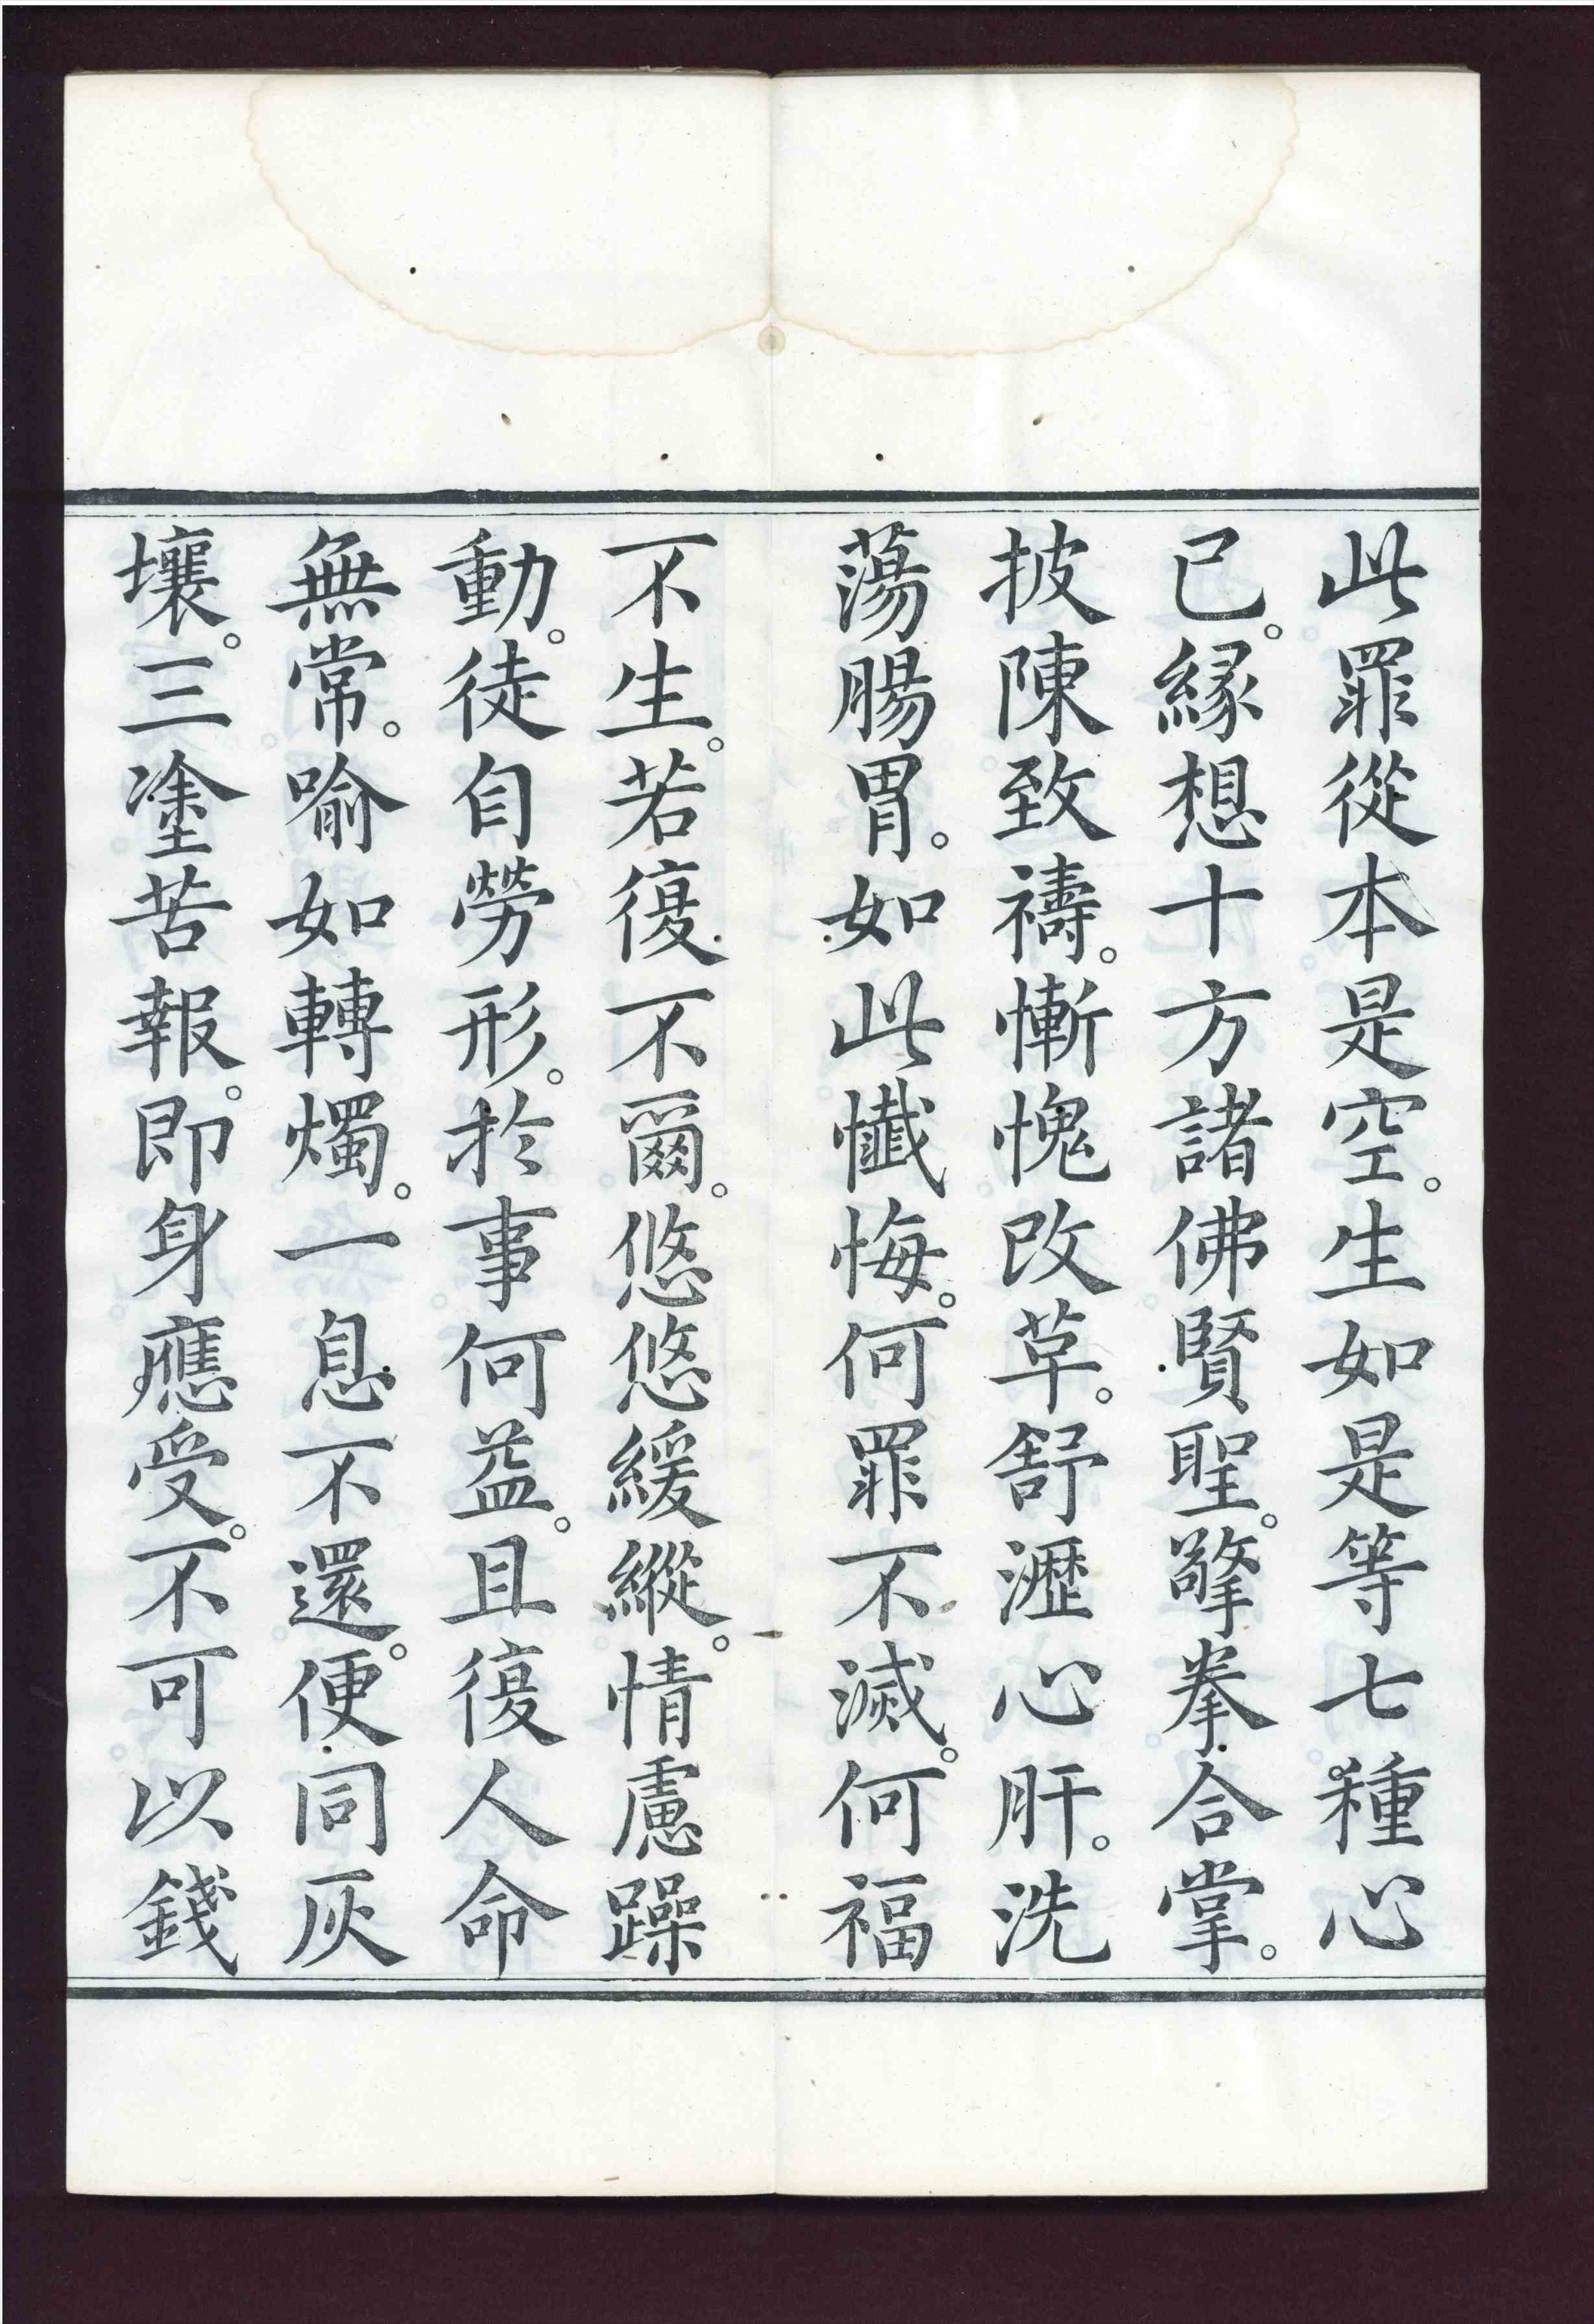 此罪從本是空。生如是等七種心
已。縁想十方諸佛賢聖。擎拳合掌。
披陳致禱。慚愧改草。舒瀝心肝。洗
蕩腸胃。如此懺悔。何罪不滅。何福
不生。若復不爾。悠悠緩縱。情慮躁
動。徒自勞形。於事何益。且復人命
無常。喻如轉燭。一息不還。便同灰
壤。三塗苦報。即身應受。不可以錢